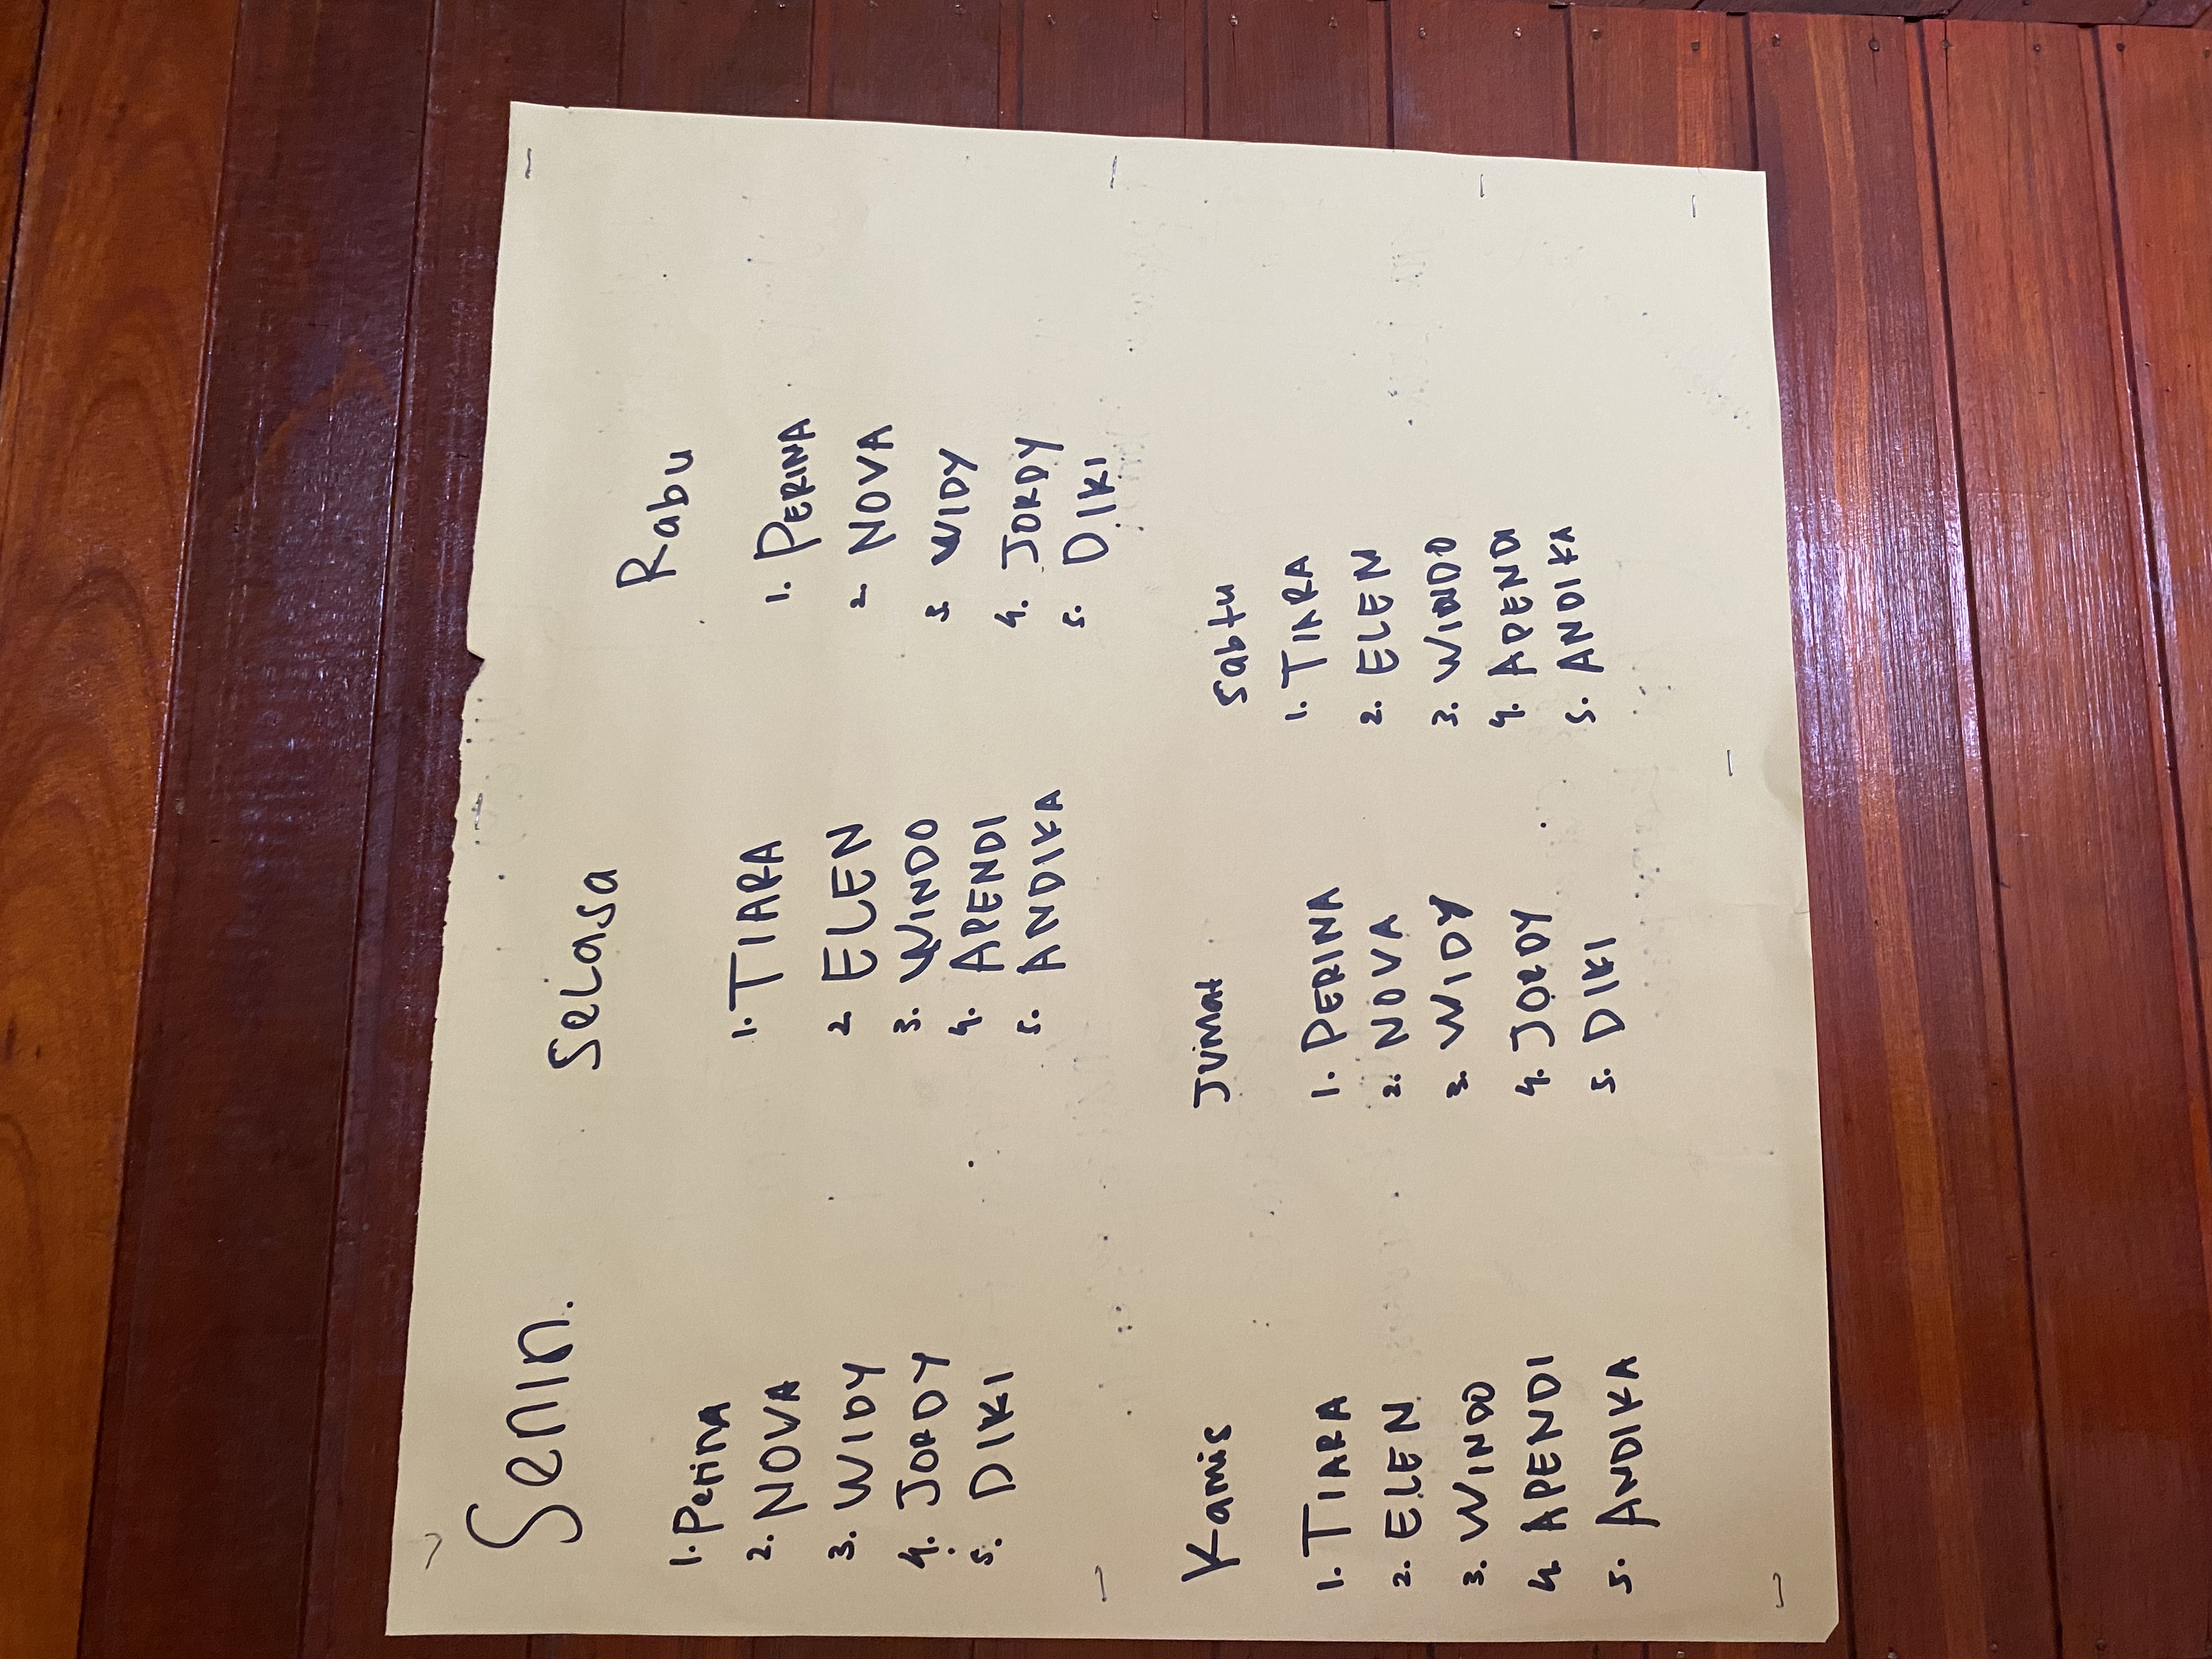 Senin.
1. Perina
2. NOVA
3. WIDY
4. JORDY
5. DIKI
Selasa
1. TIARA
2. ELEN
3. WINDO
4. APENDI
5. ANDIKA
Rabu
1. PERINA
2. NOVA
3. WIDY
4. JORDY
5. DIKI
Kamis
1. TIARA
2. ELEN
3. WINDO
4. APENDI
5. ANDIKA
Jumat
1. PERINA
2. NOVA
3. WIDY
4. JORDY
5. DIKI
Sabtu
1. TIARA
2. ELEN
3. WINDO
4. APENDI
5. ANDIKA